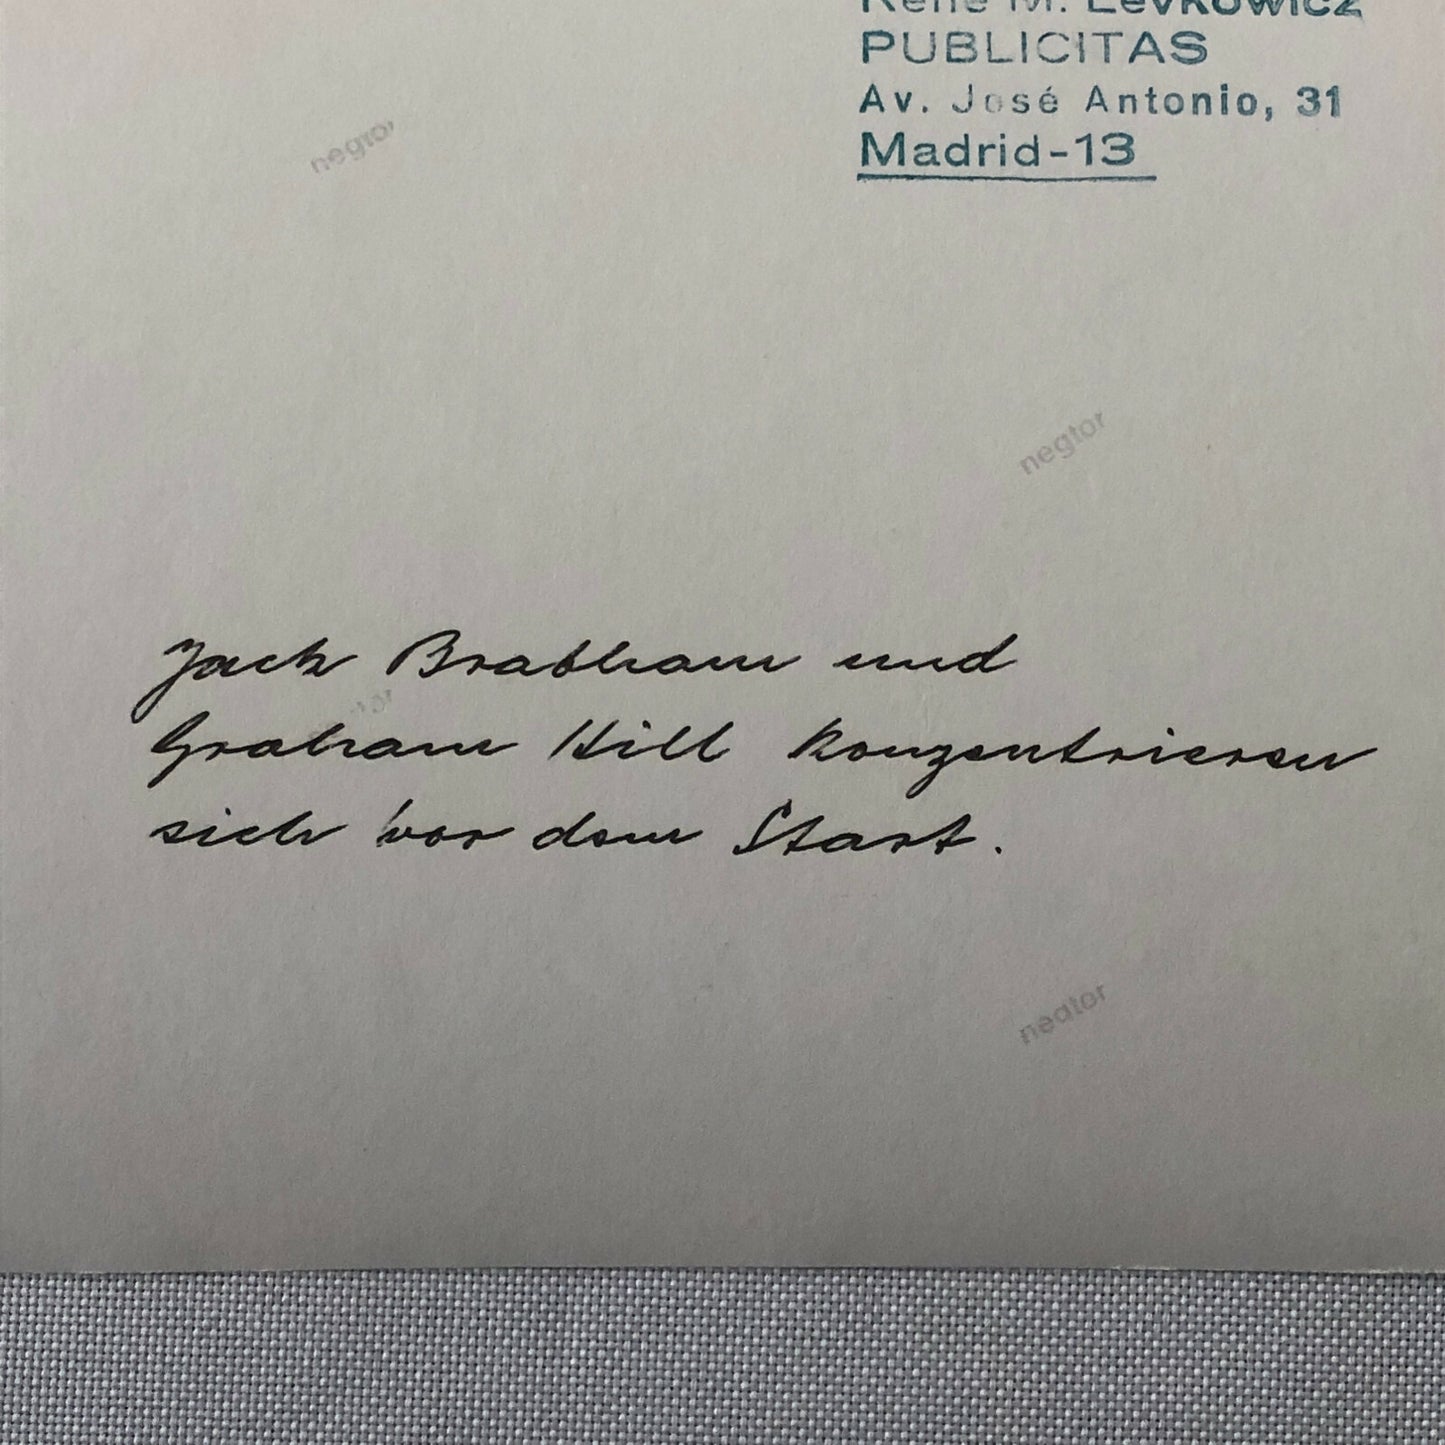 René M. Levkowicz
PUBLICITAS
Av. José Antonio, 31
Madrid-13
negtor
negtor
Jack Brabham und
Graham Hill konzentrieren
sich vor dem Start.
negtor